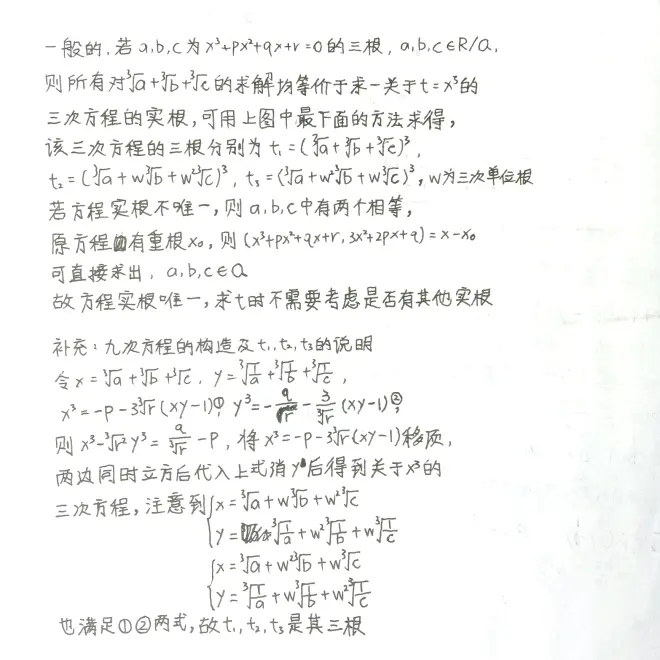 一般的,若a,b,c为x³+px²+qx+r=0的三根,a,b,c∈R/Q,
则所有对∛a+∛b+∛c的求解均等价于求一关于t=x³的
三次方程的实根,可用上图中最下面的方法求得,
该三次方程的三根分别为t₁=(∛a+∛b+∛c)³,
t₂=(∛a+w∛b+w²∛c)³,t₃=(∛a+w²∛b+w∛c)³,w为三次单位根
若方程实根不唯一,则a,b,c中有两个相等,
原方程有重根x₀,则(x³+px²+qx+r,3x²+2px+q)=x-x₀
可直接求出,a,b,c∈Q
故方程实根唯一,求t时不需要考虑是否有其他实根
补充:九次方程的构造及t₁,t₂,t₃的说明
令x=∛a+∛b+∛c,y=∛(1/a)+∛(1/b)+∛(1/c),
x³=-p-3∛r(xy-1)①,y³=-q/r-3/∛r(xy-1)②,
则x³-∛r²y³=q/∛r-p,将x³=-p-3∛r(xy-1)移项,
两边同时立方后代入上式消y后得到关于x³的
三次方程,注意到{x=∛a+w∛b+w²∛c
{y=∛(1/a)+w²∛(1/b)+w∛(1/c)
{x=∛a+w²∛b+w∛c
{y=∛(1/a)+w∛(1/b)+w²∛(1/c)
也满足①②两式,故t₁,t₂,t₃是其三根